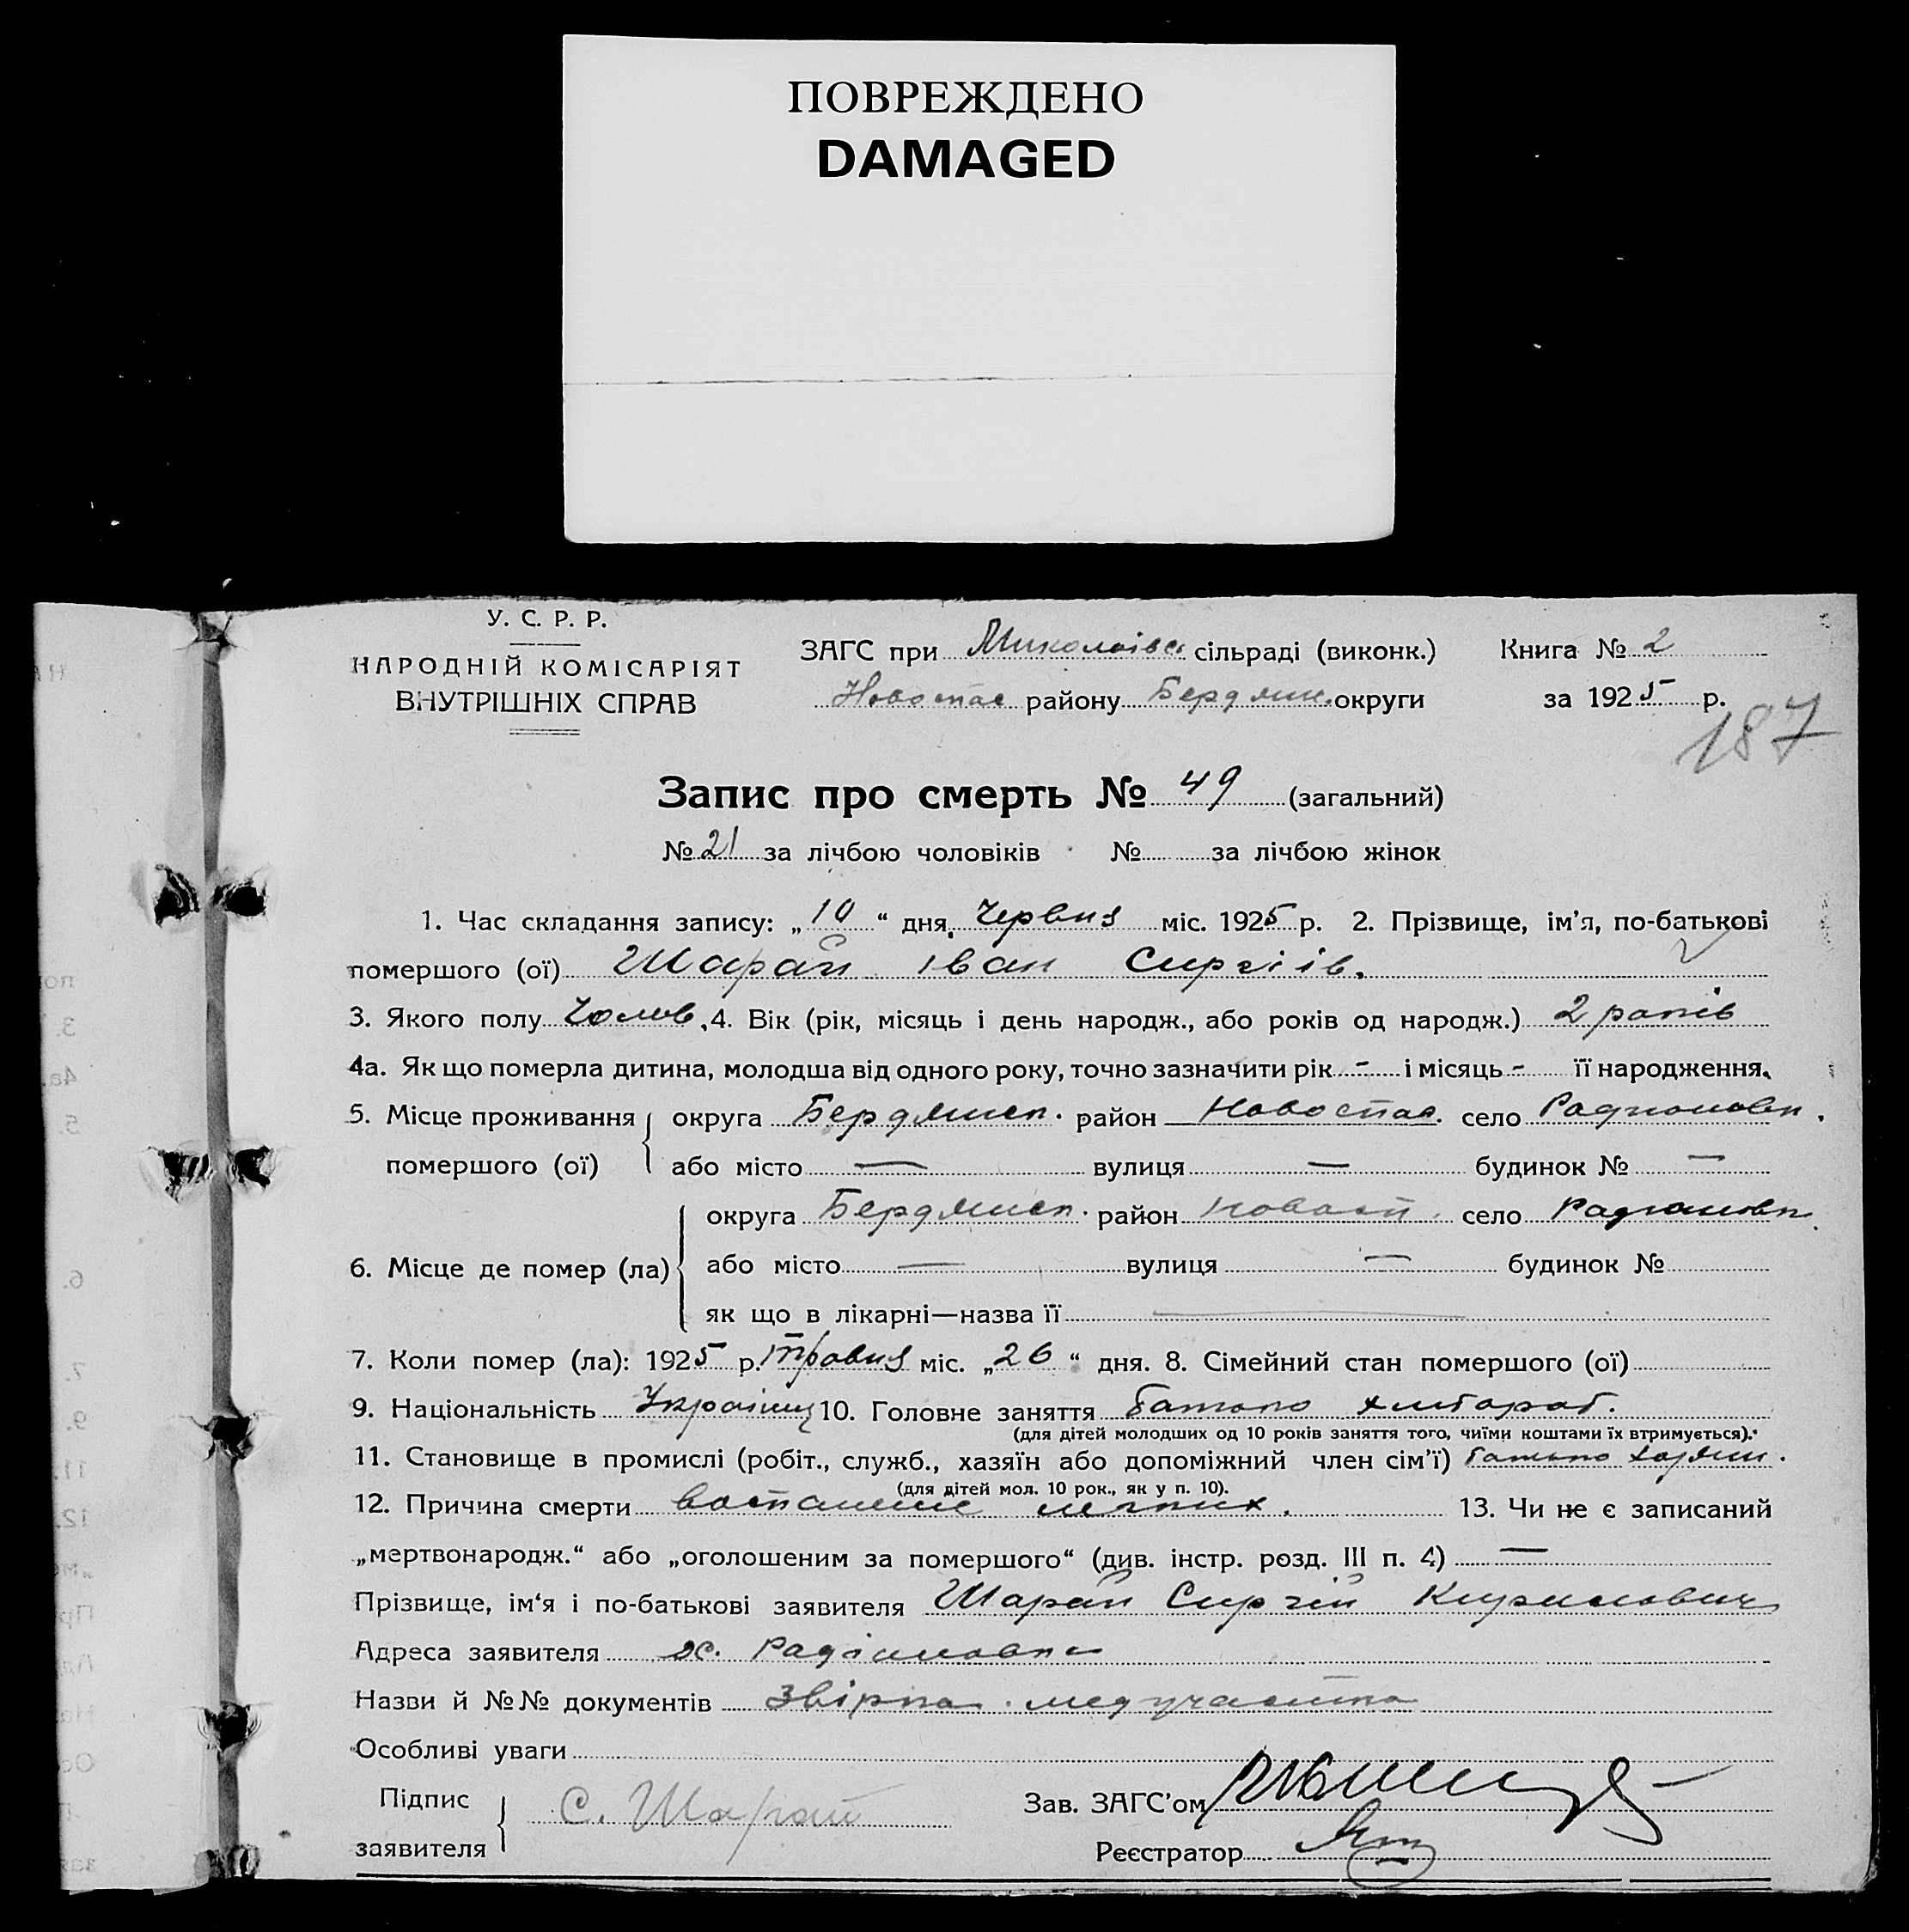 ПОВРЕЖДЕНО
DAMAGED
У. С. Р. Р.
НАРОДНІЙ КОМІСАРІЯТ
ВНУТРІШНІХ СПРАВ
ЗАГС при Миколаівс сільраді (виконк.) Книга № 2
Новоспас району Бердянс. округи за 1925 р.
187
Запис про смерть № 49 (загальний)
№ 21 за лічбою чоловіків № за лічбою жінок
1. Час складання запису: „10“ дня, Червня міс. 1925 р. 2. Прізвище, ім’я, по-батькові
помершого (ої) Шарай Іван Сиргіів.
3. Якого полу Чолов. 4. Вік (рік, місяць і день народж., або років од народж.) 2 років
4а. Як що померла дитина, молодша від одного року, точно зазначити рік - і місяць - її народження.
5. Місце проживання округа Бердянськ. район Новоспас. село Радионовк.
помершого (ої) або місто — вулиця — будинок № —
округа Бердянськ. район Новосп. село Радионовк.
6. Місце де помер (ла) або місто — вулиця — будинок №
як що в лікарні—назва її —
7. Коли помер (ла): 1925 р. Травня міс. „26“ дня. 8. Сімейний стан помершого (ої)
9. Національність Україниц 10. Головне заняття батько хлібороб.
(для дітей молодших од 10 років заняття того, чиїми коштами їх втримується).
11. Становище в промислі (робіт., служб., хазяїн або допоміжний член сім’ї) батько хазяин.
(для дітей мол. 10 рок., як у п. 10).
12. Причина смерти воспаление легких. 13. Чи не є записаний
„мертвонародж.“ або „оголошеним за помершого“ (див. інстр. розд. III п. 4) —
Прізвище, ім‘я і по-батькові заявителя Шарай Сиргій Кирилович
Адреса заявителя с. Радіоновка
Назви й №№ документів Звірка медучастка
Особливі уваги
Підпис
заявителя С. Шарай
Зав. ЗАГС’ом
Реєстратор